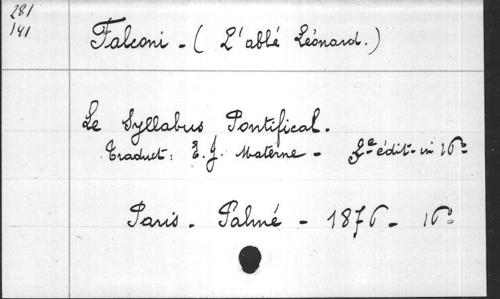 281
141
Falconi - ( L'abbé Léonard. )
Le Syllabus Pontifical.
Traduct: E. J. Materne - 2e édit - in 16°
Paris - Palmé - 1876 - 16°